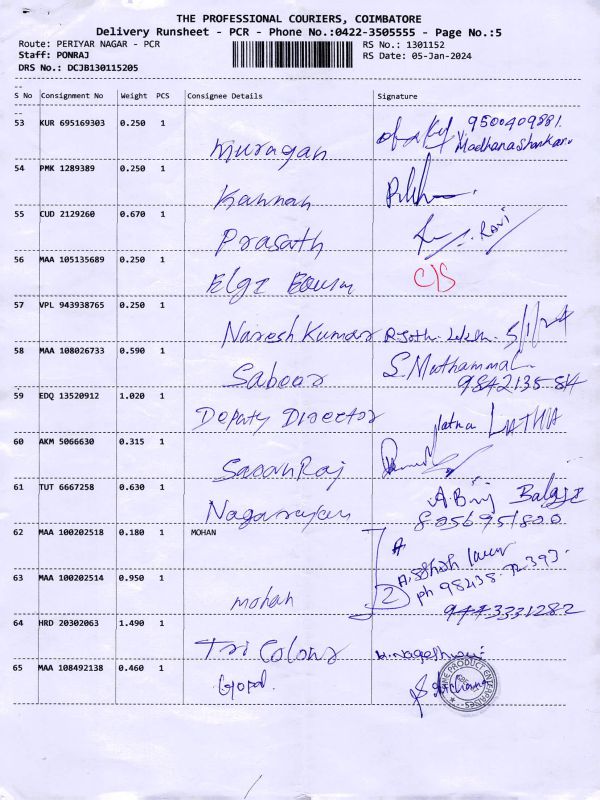 THE PROFESSIONAL COURIERS, COIMBATORE
Delivery Runsheet - PCR - Phone No.:0422-3505555 - Page No.:5
Route: PERIYAR NAGAR - PCR RS No.: 1301152
Staff: PONRAJ RS Date: 05-Jan-2024
DRS No.: DCJB130115205
S No Consignment No Weight PCS Consignee Details Signature
53 KUR 695169303 0.250 1 Murugan 9500409881
Madhanashankar
54 PMK 1289389 0.250 1 Kannan
55 CUD 2129260 0.670 1 Prasath RAVI
56 MAA 105135689 0.250 1 Elgi C/S
57 VPL 943938765 0.250 1 Naresh Kumar 5/1/24
58 MAA 108026733 0.590 1 Saboor S. Muthammal
9842135814
59 EDQ 13520912 1.020 1 Deputy Director LATHA
60 AKM 5066630 0.315 1 SaranRaj
61 TUT 6667258 0.630 1 Nagarajan Balaji
8056951800
62 MAA 100202518 0.180 1 MOHAN
63 MAA 100202514 0.950 1 mohan 2 ph 98438-72393
9443331282
64 HRD 20302063 1.490 1 Tri Colors H. Nageshwari
65 MAA 108492138 0.460 1 Gopal Archana